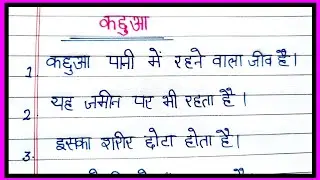 कछुआ
1. कछुआ पानी में रहने वाला जीव है।
2. यह जमीन पर भी रहता है।
3. इसका शरीर छोटा होता है।